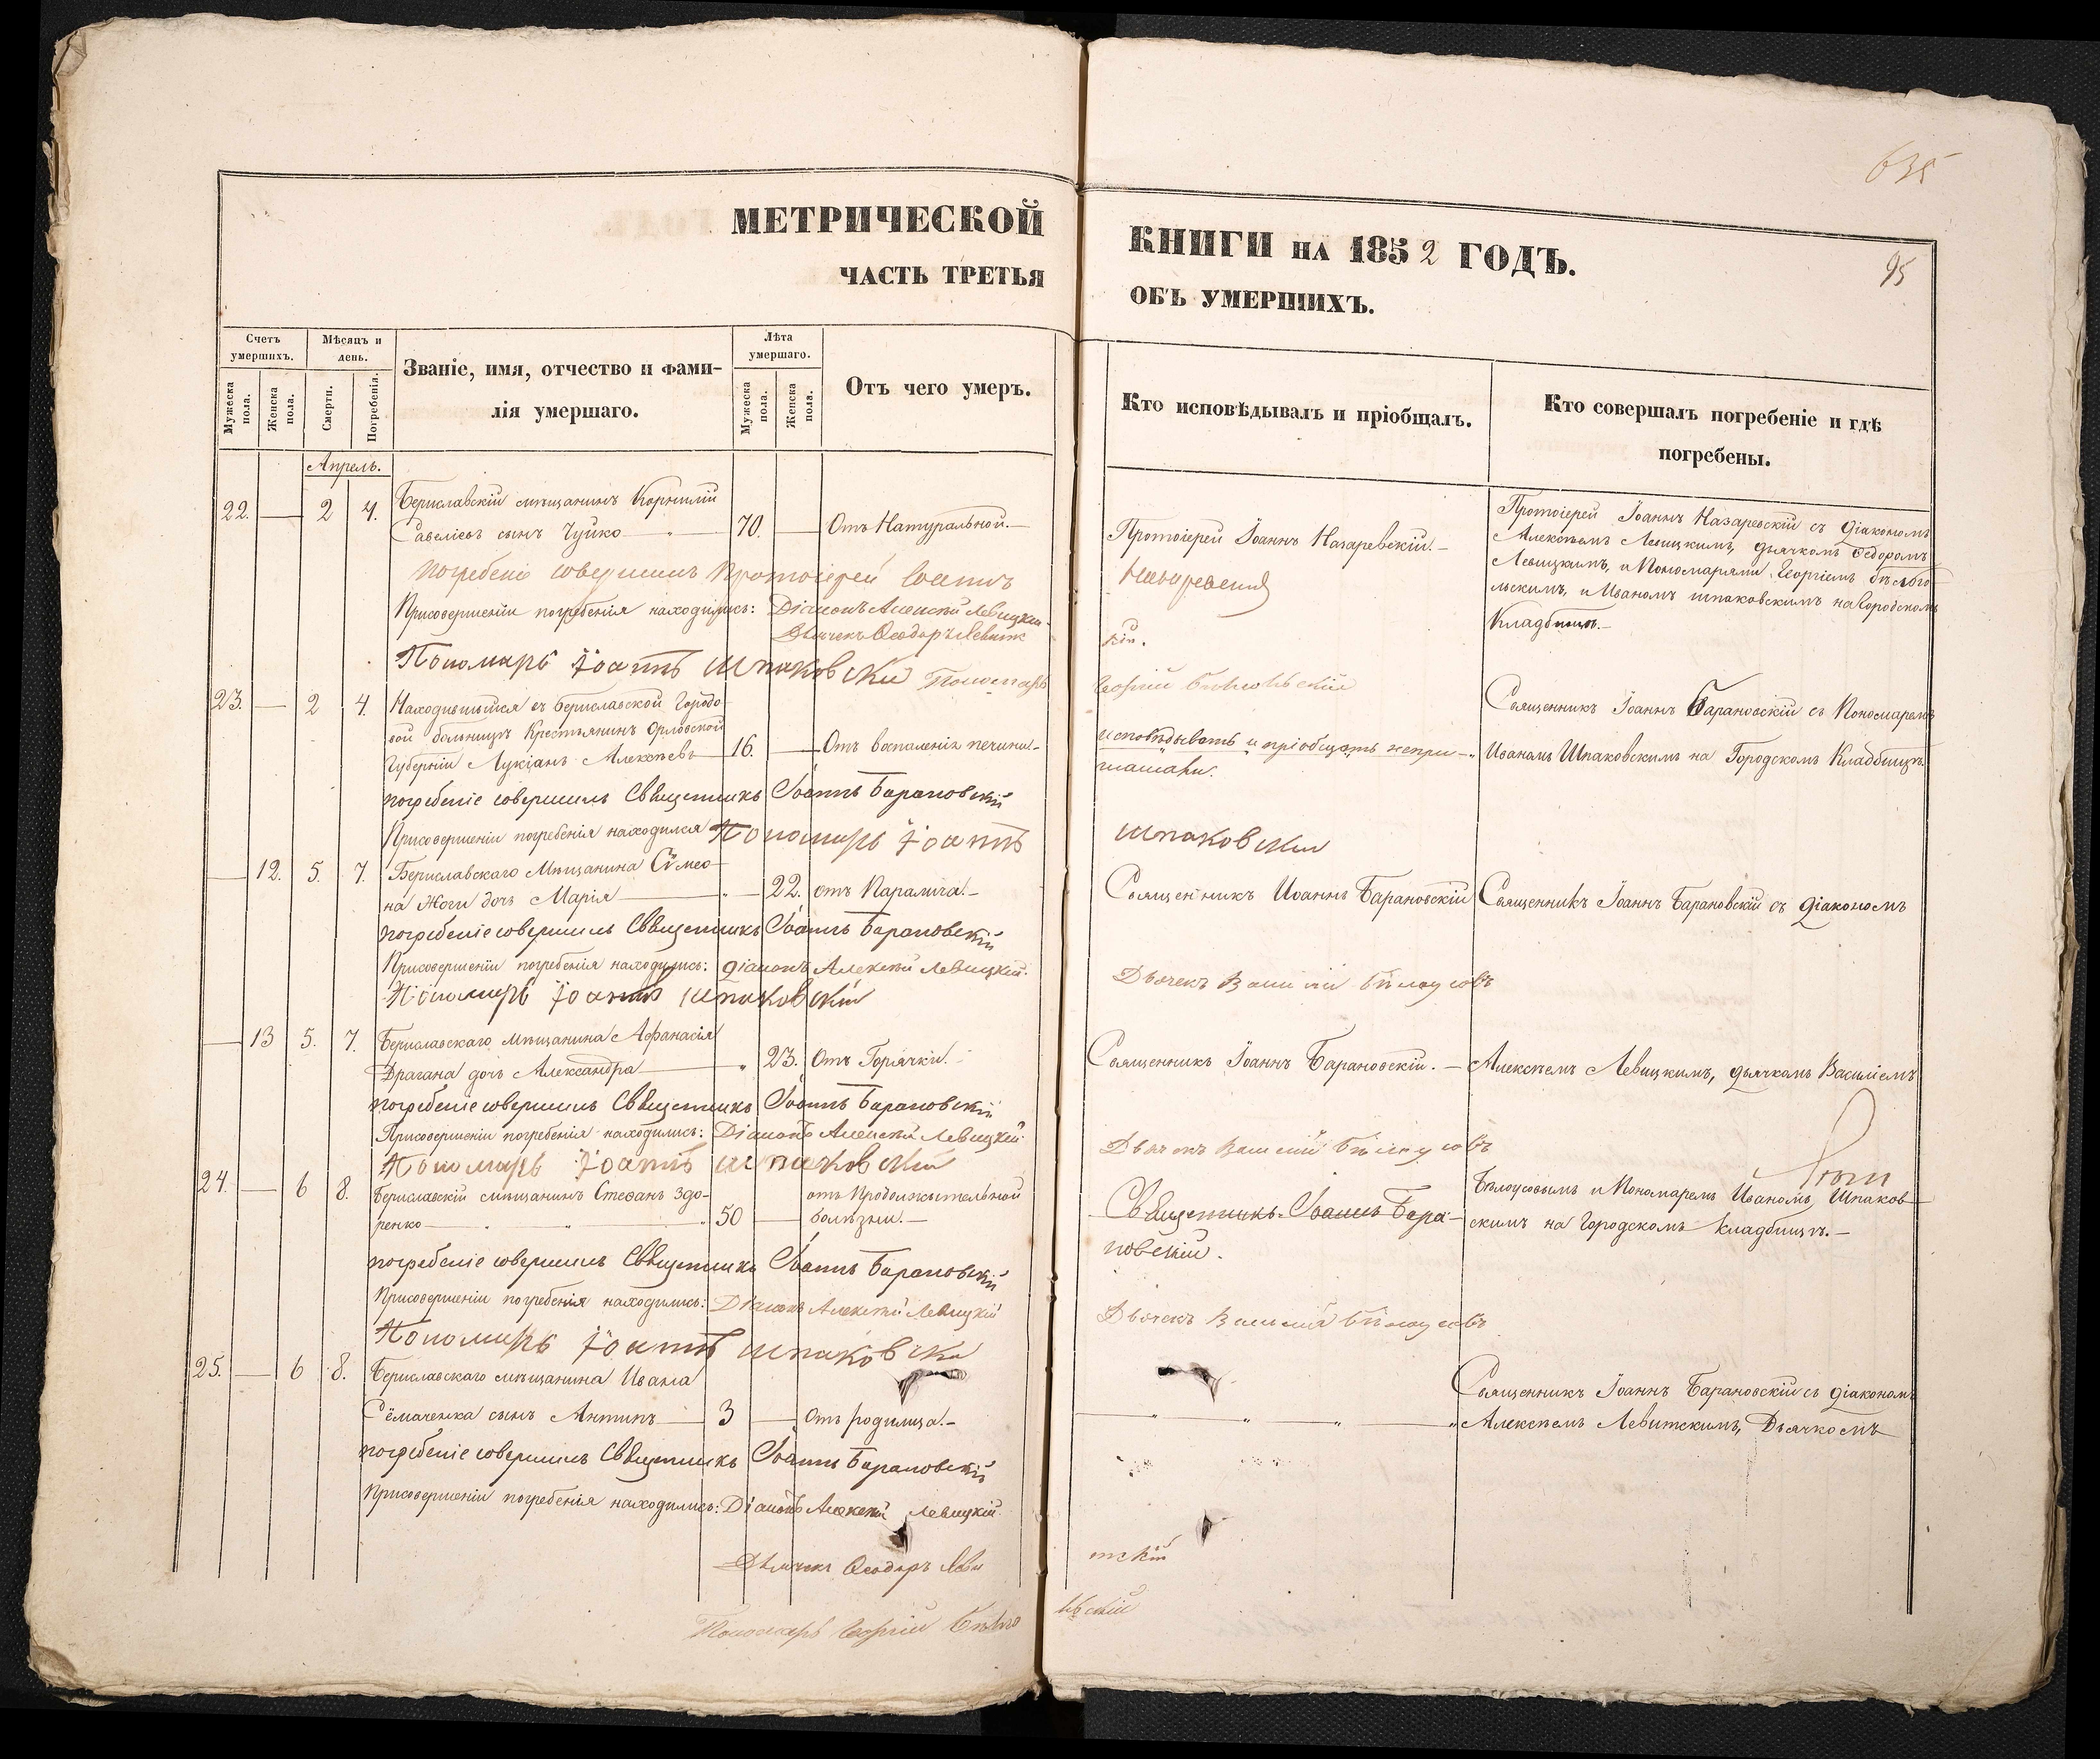 635
МЕТРИЧЕСКОЙ
ЧАСТЬ ТРЕТЬЯ
КНИГИ НА 1852 ГОДЪ.
ОБЪ УМЕРШИХЪ.
95
Счетъ умершихъ.
Мѣсяцъ и день.
Званіе, имя, отчество и фамилія умершаго.
Лѣта умершаго.
Отъ чего умеръ.
Кто исповѣдывалъ и пріобщалъ.
Кто совершалъ погребеніе и гдѣ погребены.
Мужеска пола.
Женска пола.
Смерти.
Погребенія.
Мужеска пола.
Женска пола.
Апрель.
22. — 2 4. Бериславскій мѣщанинъ Корнилій
Савеліевъ сынъ Чуйко 70. — Отъ Натуральной.—
Протоіерей Іоаннъ Назаревскій.—
Протоіерей Іоаннъ Назаревскій съ діакономъ
Алексѣемъ Левицкимъ, дьячкомъ Ѳедоромъ
Левицкимъ, и Пономарями Георгіемъ Бѣлого
льскимъ, и Иваномъ шпаковскимъ на Городскомъ
Кладбищѣ.—
погребеніе совершилъ Протоіерей Іоаннъ
Назаревскій
Присовершеніи погребенія находились: Діаконъ Алексѣй Левицкій.
Дьячекъ Ѳеодоръ Левиц
кій.
Пономарь Іоаннъ Шпаковскій Пономарь
Георгій
23. — 2 4. Находившійся въ Бериславской Городо
вой больницѣ Крестьянинъ Орловской
Губерніи Лукіанъ Алексѣевъ 16. — Отъ воспаленія печени.—
исповѣдывать и пріобщать непри—
глашали.
Священникъ Іоаннъ Барановскій съ Пономаремъ
Иваномъ Шпаковскимъ на Городскомъ Кладбищѣ.
погребеніе совершилъ Священникъ Іоаннъ Барановскій
Присовершеніи погребенія находился Пономарь Іоаннъ
Шпаковскій
— 12. 5. 7. Бериславскаго Мѣщанина Сѵмео
на Жоги дочь Марія 22. отъ Паралича.—
Священникъ Иоаннъ Барановскій
Священникъ Іоаннъ Барановскій съ діакономъ
погребеніе совершилъ Священникъ Іоаннъ Барановскій
Присовершеніи погребенія находились: діаконъ Алексѣй Левицкій.
Дьячекъ Василій Бѣлоусовъ
Пономарь Іоаннъ Шпаковскій
— 13 5. 7. Бериславскаго мѣщанина Афанасія
Драгана дочь Александра 23. Отъ Горячки.—
Священникъ Іоаннъ Барановскій.—
Алексѣемъ Левицкимъ, дьячкомъ Василіемъ
погребеніе совершилъ Священникъ Іоаннъ Барановскій
Присовершеніи погребенія находились: Діаконъ Алексѣй Левицкій.
Дьячекъ Василій Бѣлоусовъ
Пономарь Іоаннъ Шпаковскій
24. — 6 8. Бериславскій мѣщанинъ Стефанъ Здо-
ренко 50 — отъ Продолжительной
болѣзни.—
Священникъ Іоаннъ Бара-
новскій.
Бѣлоусовымъ и Пономаремъ Иваномъ Шпаков
скимъ на Городскомъ кладбищѣ.—
погребеніе совершилъ Священникъ Іоаннъ Барановскій
Присовершеніи погребенія находились: Діаконъ Алексѣй Левицкій
Дьячекъ Василій Бѣлоусовъ
Пономарь Іоаннъ Шпаковскій
25. — 6 8. Бериславскаго мѣщанина Ивана
Сёмаченка сынъ Антипъ 3 — Отъ родимца.—
Священникъ Іоаннъ Барановскій съ діакономъ
Алексѣемъ Левитскимъ, Дьячкомъ
погребеніе совершилъ Священникъ Іоаннъ Барановскій
Присовершеніи погребенія находились: Діаконъ Алексѣй Левицкій.
Дьячекъ Ѳеодоръ Леви
тскій
Пономарь Георгій